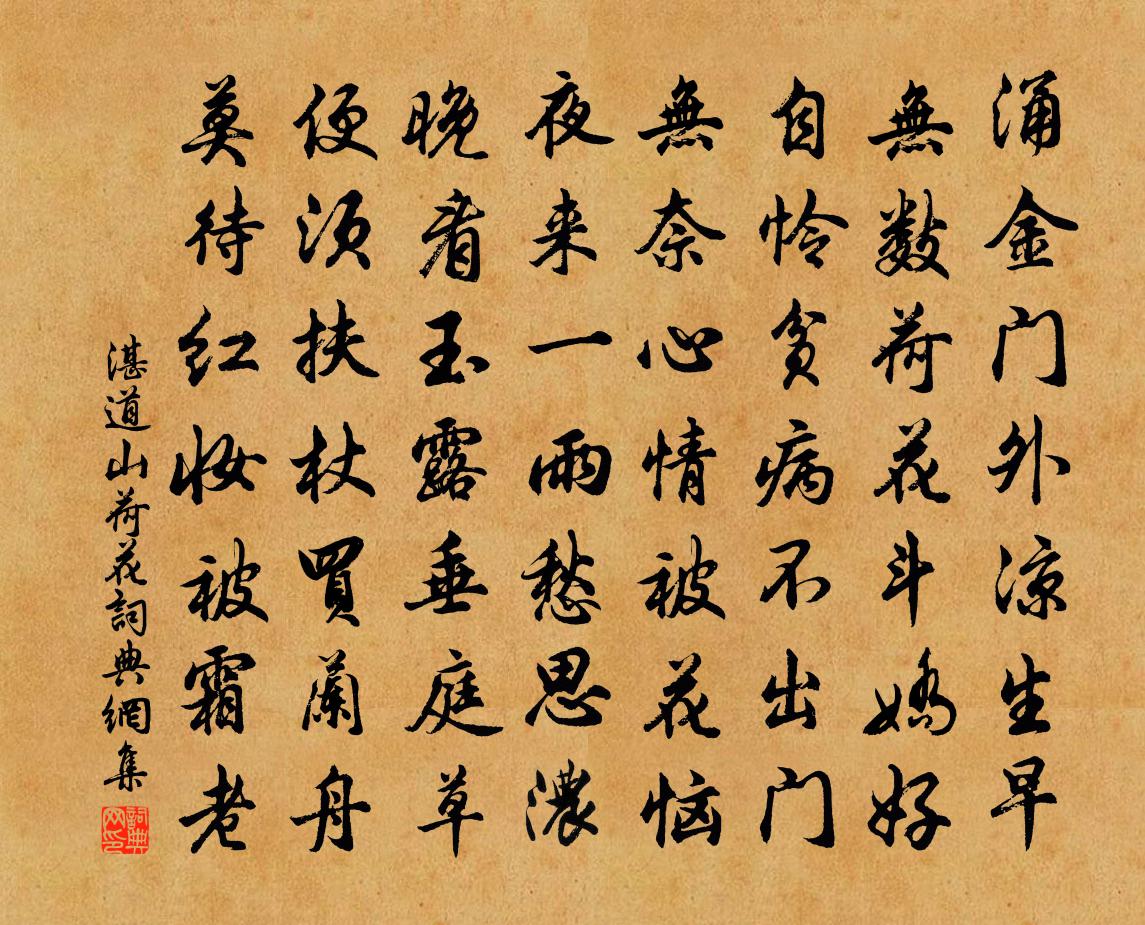 涌金门外凉生早
無数荷花斗嬌好
自怜贫病不出门
無奈心情被花恼
夜来一雨愁思濃
晚看玉露垂庭草
便须扶杖買蘭舟
莫待红妆被霜老
湛道山荷花詞典網集
詞典网印